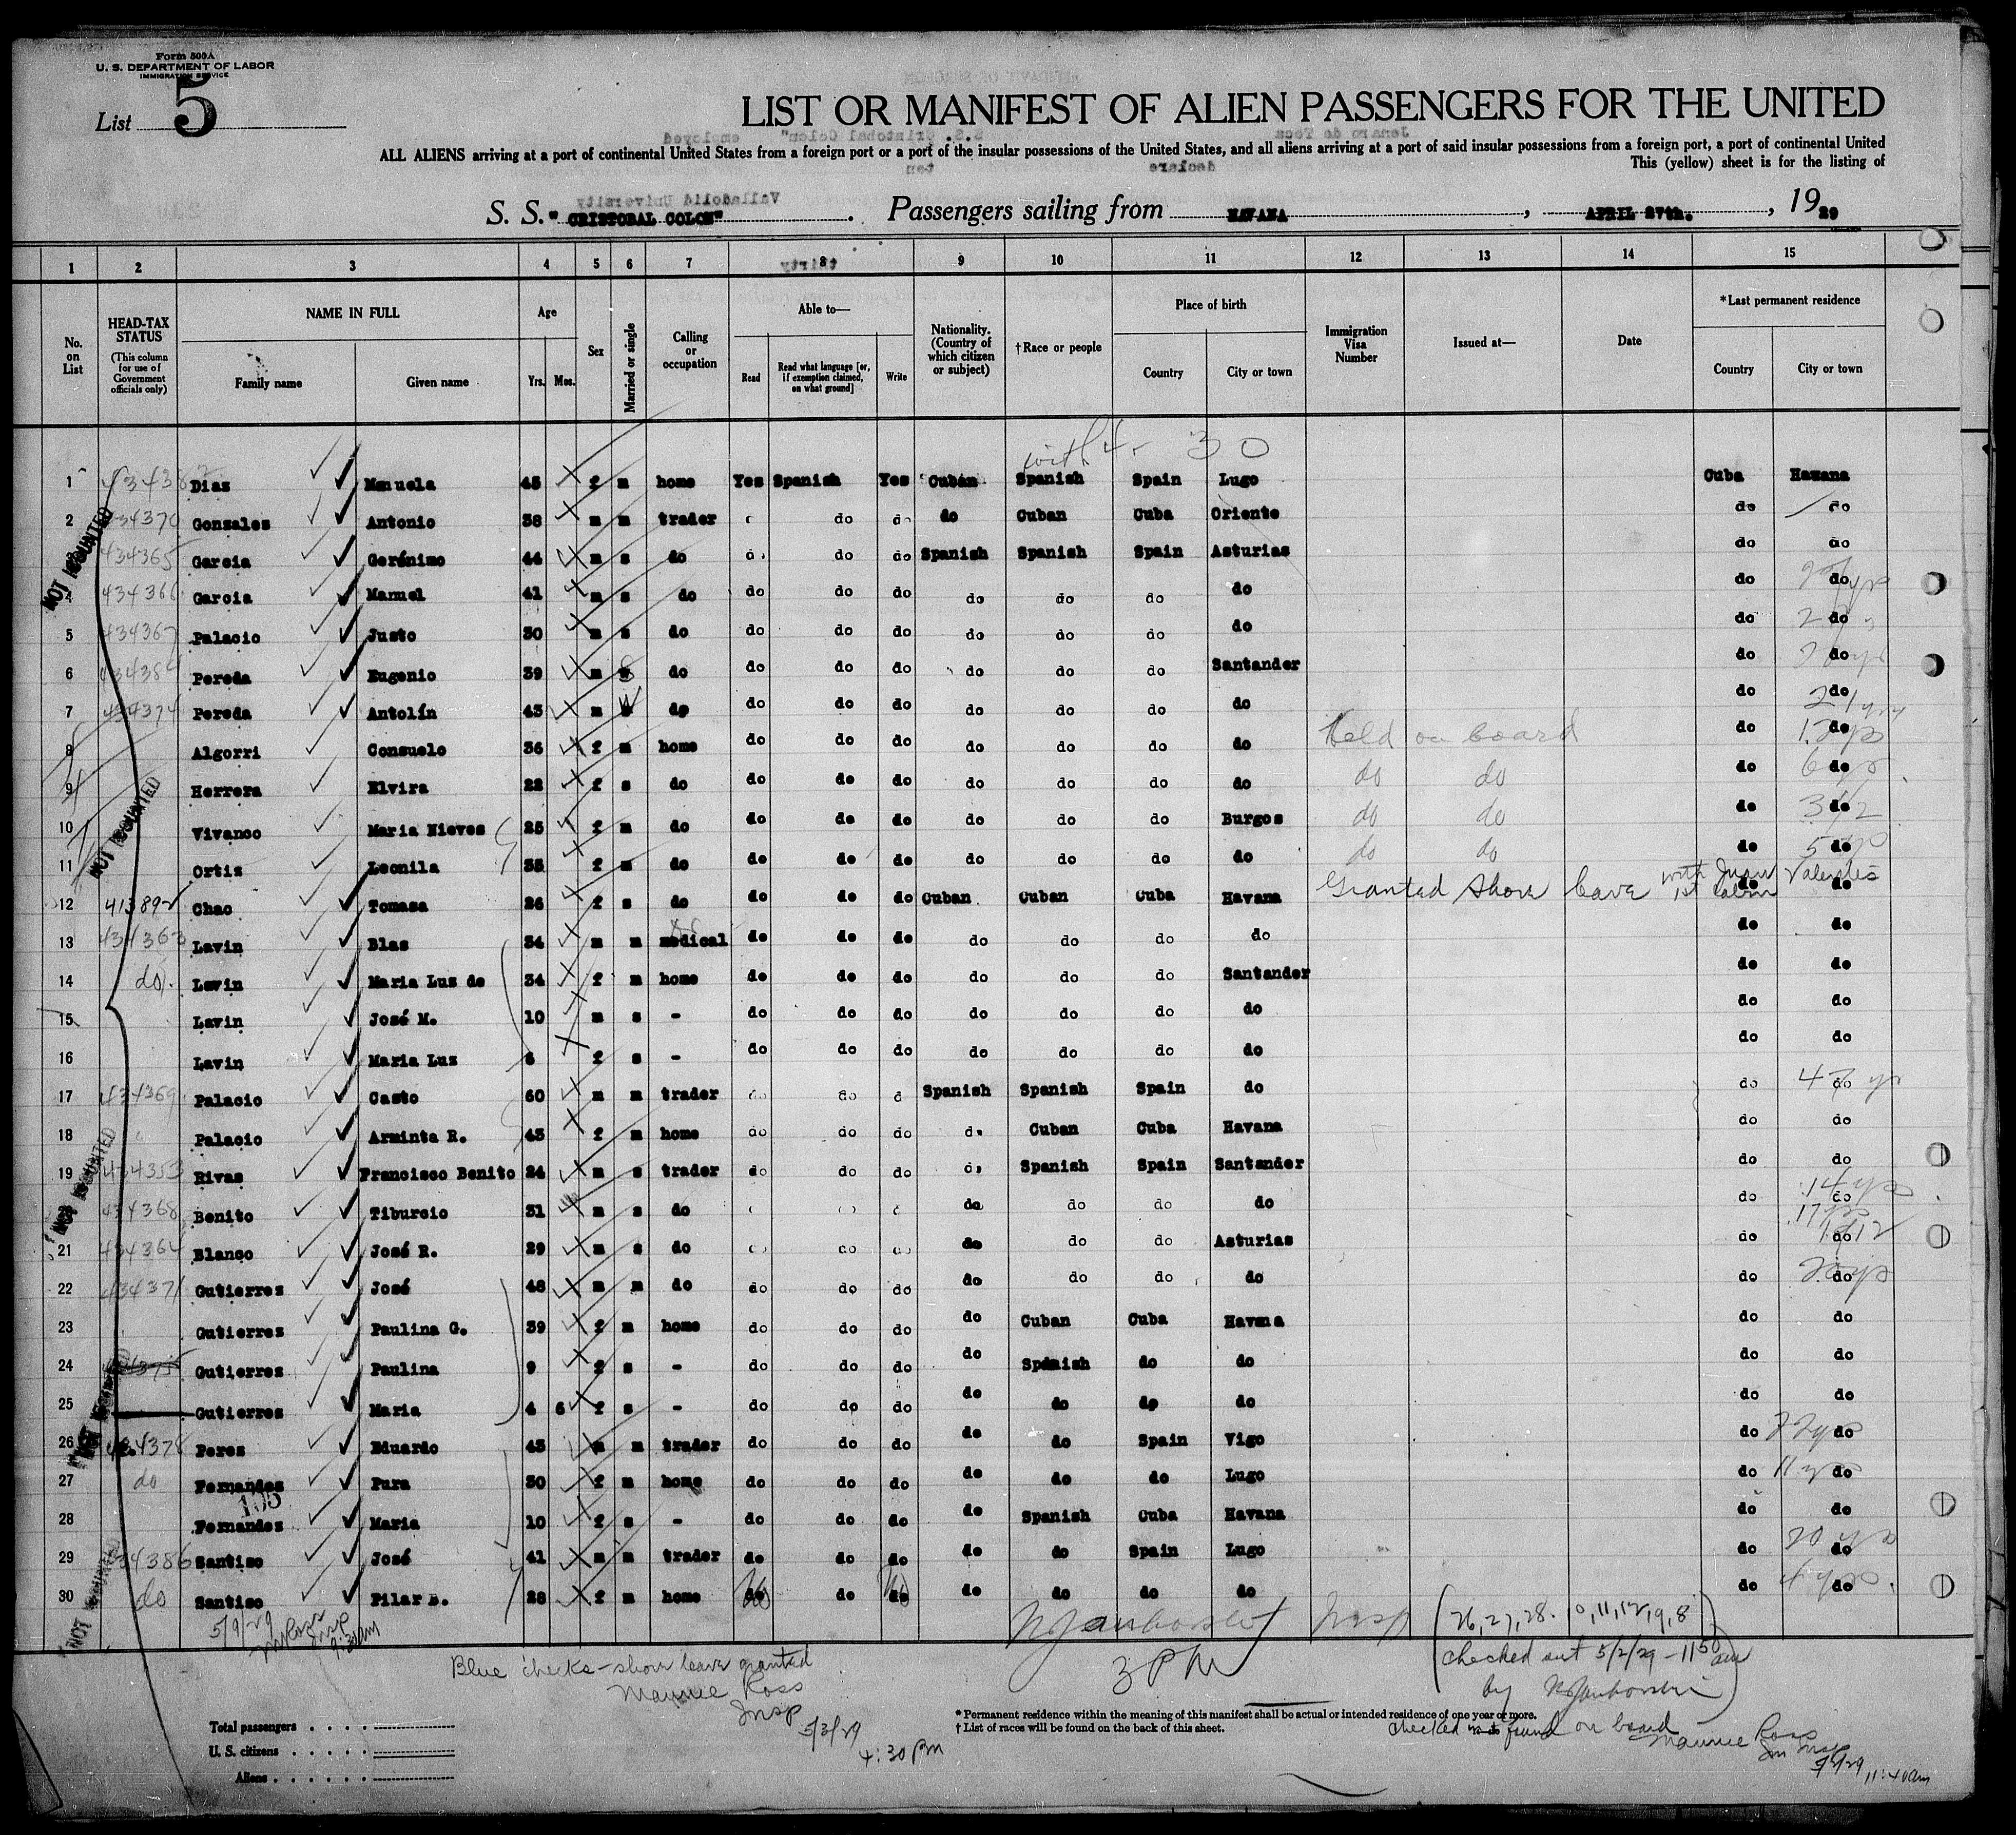 Form 500A
U. S. DEPARTMENT OF LABOR
IMMIGRATION SERVICE
List 5
LIST OR MANIFEST OF ALIEN PASSENGERS FOR THE UNITED
ALL ALIENS arriving at a port of continental United States from a foreign port or a port of the insular possessions of the United States, and all aliens arriving at a port of said insular possessions from a foreign port, a port of continental United
This (yellow) sheet is for the listing of
S. S. "CRISTOBAL COLON" . Passengers sailing from HAVANA , APRIL 27th. , 1929
1 2 3 4 5 6 7 8 9 10 11 12 13 14 15
No. on List
HEAD-TAX STATUS (This column for use of Government officials only)
NAME IN FULL
Family name
Given name
Age
Yrs.
Mos.
Sex
Married or single
Calling or occupation
Able to—
Read
Read what language [or, if exemption claimed, on what ground]
Write
Nationality. (Country of which citizen or subject)
†Race or people
Place of birth
Country
City or town
Immigration Visa Number
Issued at—
Date
*Last permanent residence
Country
City or town
with 4- 30
1 Dias Manuela 45 f m home Yes Spanish Yes Cuban Spanish Spain Lugo Cuba Havana
2 434370 Gonzales Antonio 38 m m trader do do do Cuban Cuba Oriente do do
3 434365 Garcia Gerónimo 44 m s do do do Spanish Spanish Spain Asturias do do
4 434366 Garcia Manuel 41 m s do do do do do do do do do do
5 434367 Palacio Justo 30 m s do do do do do do do do do do
6 Pereda Eugenio 39 m S do do do do do do do Santander do do
7 434374 Pereda Antolín 43 m W do do do do do do do do do 21 yrs do
8 Algorri Consuelo 36 f m home do do do do do do do Held on board do 12 yrs do
9 Herrera Elvira 22 f s do do do do do do do do do do do 6 yrs do
10 Vivanco Maria Nieves 25 f m do do do do do do do Burgos do do do 3 1/2 do
11 Ortiz Leonila 35 f m do do do do do do do do do do do 5 do
12 413892 Chao Tomasa 26 f s do do do do Cuban Cuban Cuba Havana Granted Shore leave with Juan Valentés 1st Cabin do do
13 434363 Lavin Blas 34 m m medical do do do do do do do do do
14 do. Lavin Maria Luz de 34 f m home do do do do do do Santander do do
15 Lavin José M. 10 m s - do do do do do do do do do
16 Lavin Maria Luz f s - do do do do do do do do do
17 434369 Palacio Casto 60 m m trader do do Spanish Spanish Spain do do do
18 Palacio Arminta R. 43 f m home do do do Cuban Cuba Havana do do
19 434353 Rivas Francisco Benito 24 m s trader do do do Spanish Spain Santander do do
434368 Benito Tiburcio 31 m s do do do do do do 14 yrs do
21 434364 Blanco José R. 29 m s do do do do do do Asturias do do
22 434371 Gutierres José 48 m m do do do do do do do do do 20 yrs do
23 Gutierres Paulina G. 39 f m home do do do do Cuban Cuba Havana do do
24 Gutierres Paulina 9 f s - do do do do Spanish do do do do
25 Gutierres Maria 4 6 f s - do do do do do do do do do
26 434378 Perez Eduardo 43 m m trader do do do do do Spain Vigo do 22 yrs do
27 do Fernandez Pura 30 f m home do do do do do do Lugo do 11 yrs do
28 Fernandez Maria 10 f s - do do do do Spanish Cuba Havana do do
29 434386 Santiso José 41 m m trader do do do do do Spain Lugo do 20 yrs do
30 do Santiso Pilar B. 28 f m home do do do do do do do do 4 yrs do
5/9/29
9:30am
Blue checks - shore leave granted
Maurice Ross
Insp
5/3/29
4:30 PM
Insp
3 PM
(26, 27, 28. 10, 11, 12, 9, 8
checked out 5/2/29 - 11 50 am
by
checked found on board
Maurice Ross
Im Insp
11:40am
*Permanent residence within the meaning of this manifest shall be actual or intended residence of one year or more.
†List of races will be found on the back of this sheet.
Total passengers
U. S. citizens
Aliens